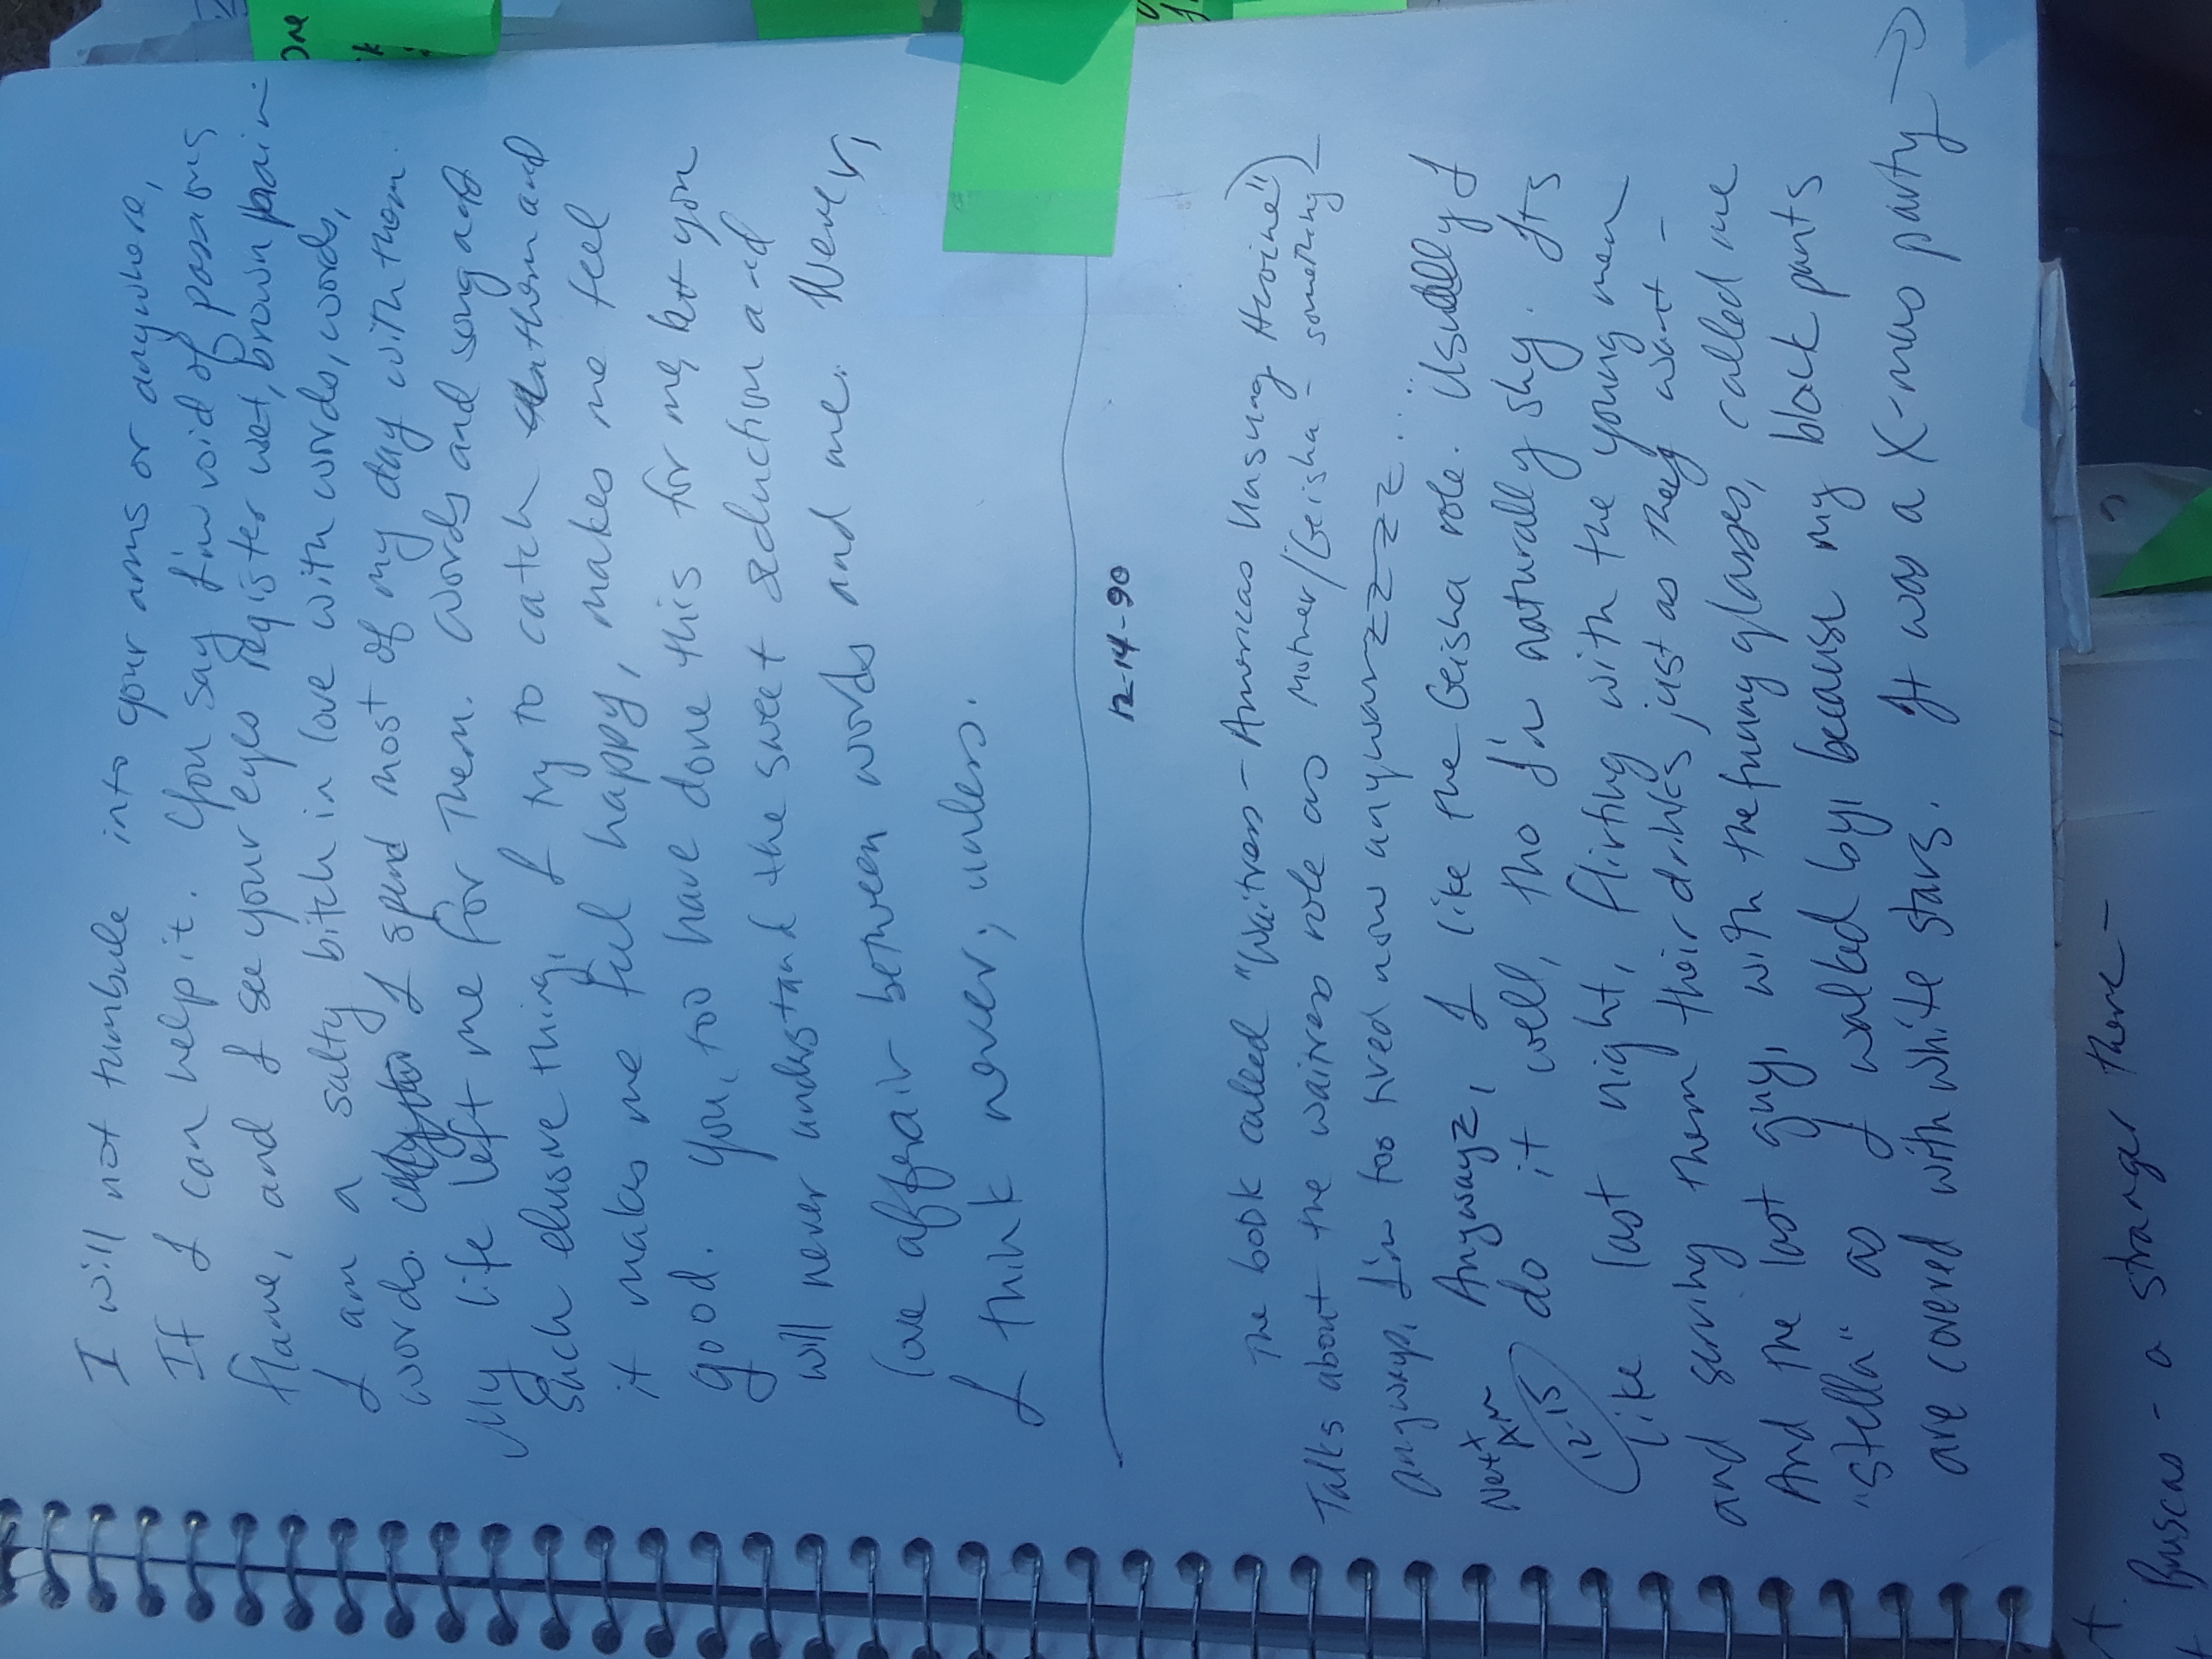 I will not tumbule into your arms or anywhere,
If I can help it. You say I'm void of passions
flame, and I see your eyes register wet, brown pain.
I am a salty bitch in love with words, words,
words. I spend most of my day with them.
My life left me for them. Words and song and
such elusive things I try to catch them and
it makes me feel happy, makes me feel
good. You, too have done this for me, but you
will never understand the sweet seduction and
love affair between words and me. Never,
I think never, unless.
12-14-90
The book called "Waitress - Americas Unsung Heroine")
Talks about the waitress role as Mother/Geisha - something
anyways, I'm too tired now anywayzzzzz...
Next AM
12-15
Anywayz, I like the Geisha role. Usually I
do it well, tho I'm naturally shy. Its
like last night, flirting with the young men
and serving them their drinks just as they want -
And the last guy, with the funny glasses, called me
"Stella" as I walked by, because my black pants
are covered with white stars. It was a X-mas party →
One
Buscas - a stranger there -